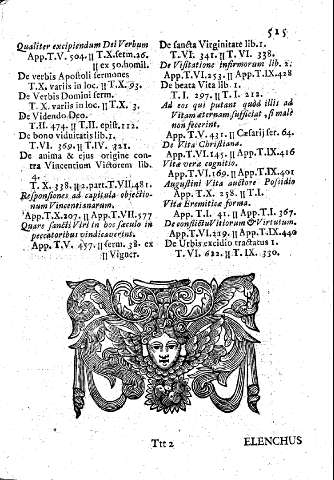 515
Qualiter excipiendum Dei Verbum
App.T.V. 504. ॥ T.X.serm.26.
॥ ex 50.homil.
De verbis Apostoli sermones
T.X. variis in loc. ॥ T.X. 93.
De Verbis Domini serm.
T.X. variis in loc. ॥ T.X. 3.
De Videndo Deo.
T.II. 474. ॥ T.II. epist.112.
De bono viduitatis lib.1.
T.VI. 369. ॥ T.IV. 321.
De anima & ejus origine con-
tra Vincentium Victorem lib.
4.
T. X. 338. ॥ 2.part.T.VII.481.
Responsiones ad capitula objectio-
num Vincentianarum.
App.T.X.207. ॥ App.T.VII.577
Quare sancti Viri in hos sæculo in
peccatoribus vindicaverint.
App.T.V. 457. ॥ serm. 38. ex
॥ Vigner.
De sancta Virginitate lib.1.
T.VI. 341. ॥ T. VI. 338.
De Visitatione infirmorum lib. 2.
App.T.VI.253. ॥ App.T.IX.428
De beata Vita lib. 1.
T.I. 297. ॥ T.I. 212.
Ad eos qui putant quòd illis ad
Vitam aternam sufficiat, si malè
non fecerint.
App.T.V. 431. ॥ Cæsarij ser. 64.
De Vita Christiana.
App.T.VI.145. ॥ App.T.IX.416
Vita vera cognitio.
App.T.VI.169. ॥ App.T.IX.401
Augustini Vita auctore Possidio
App. T.X. 258. ॥ T.I.
Vita Eremitica forma.
App. T.I. 41. ॥ App.T.I. 367.
De conflictu Vitiorum & Virtutum.
App.T.VI.219. ॥ App.T.IX.440
De Urbis excidio tractatus 1.
T. VI. 622. ॥ T. IX. 330.
Ttt 2
ELENCHUS